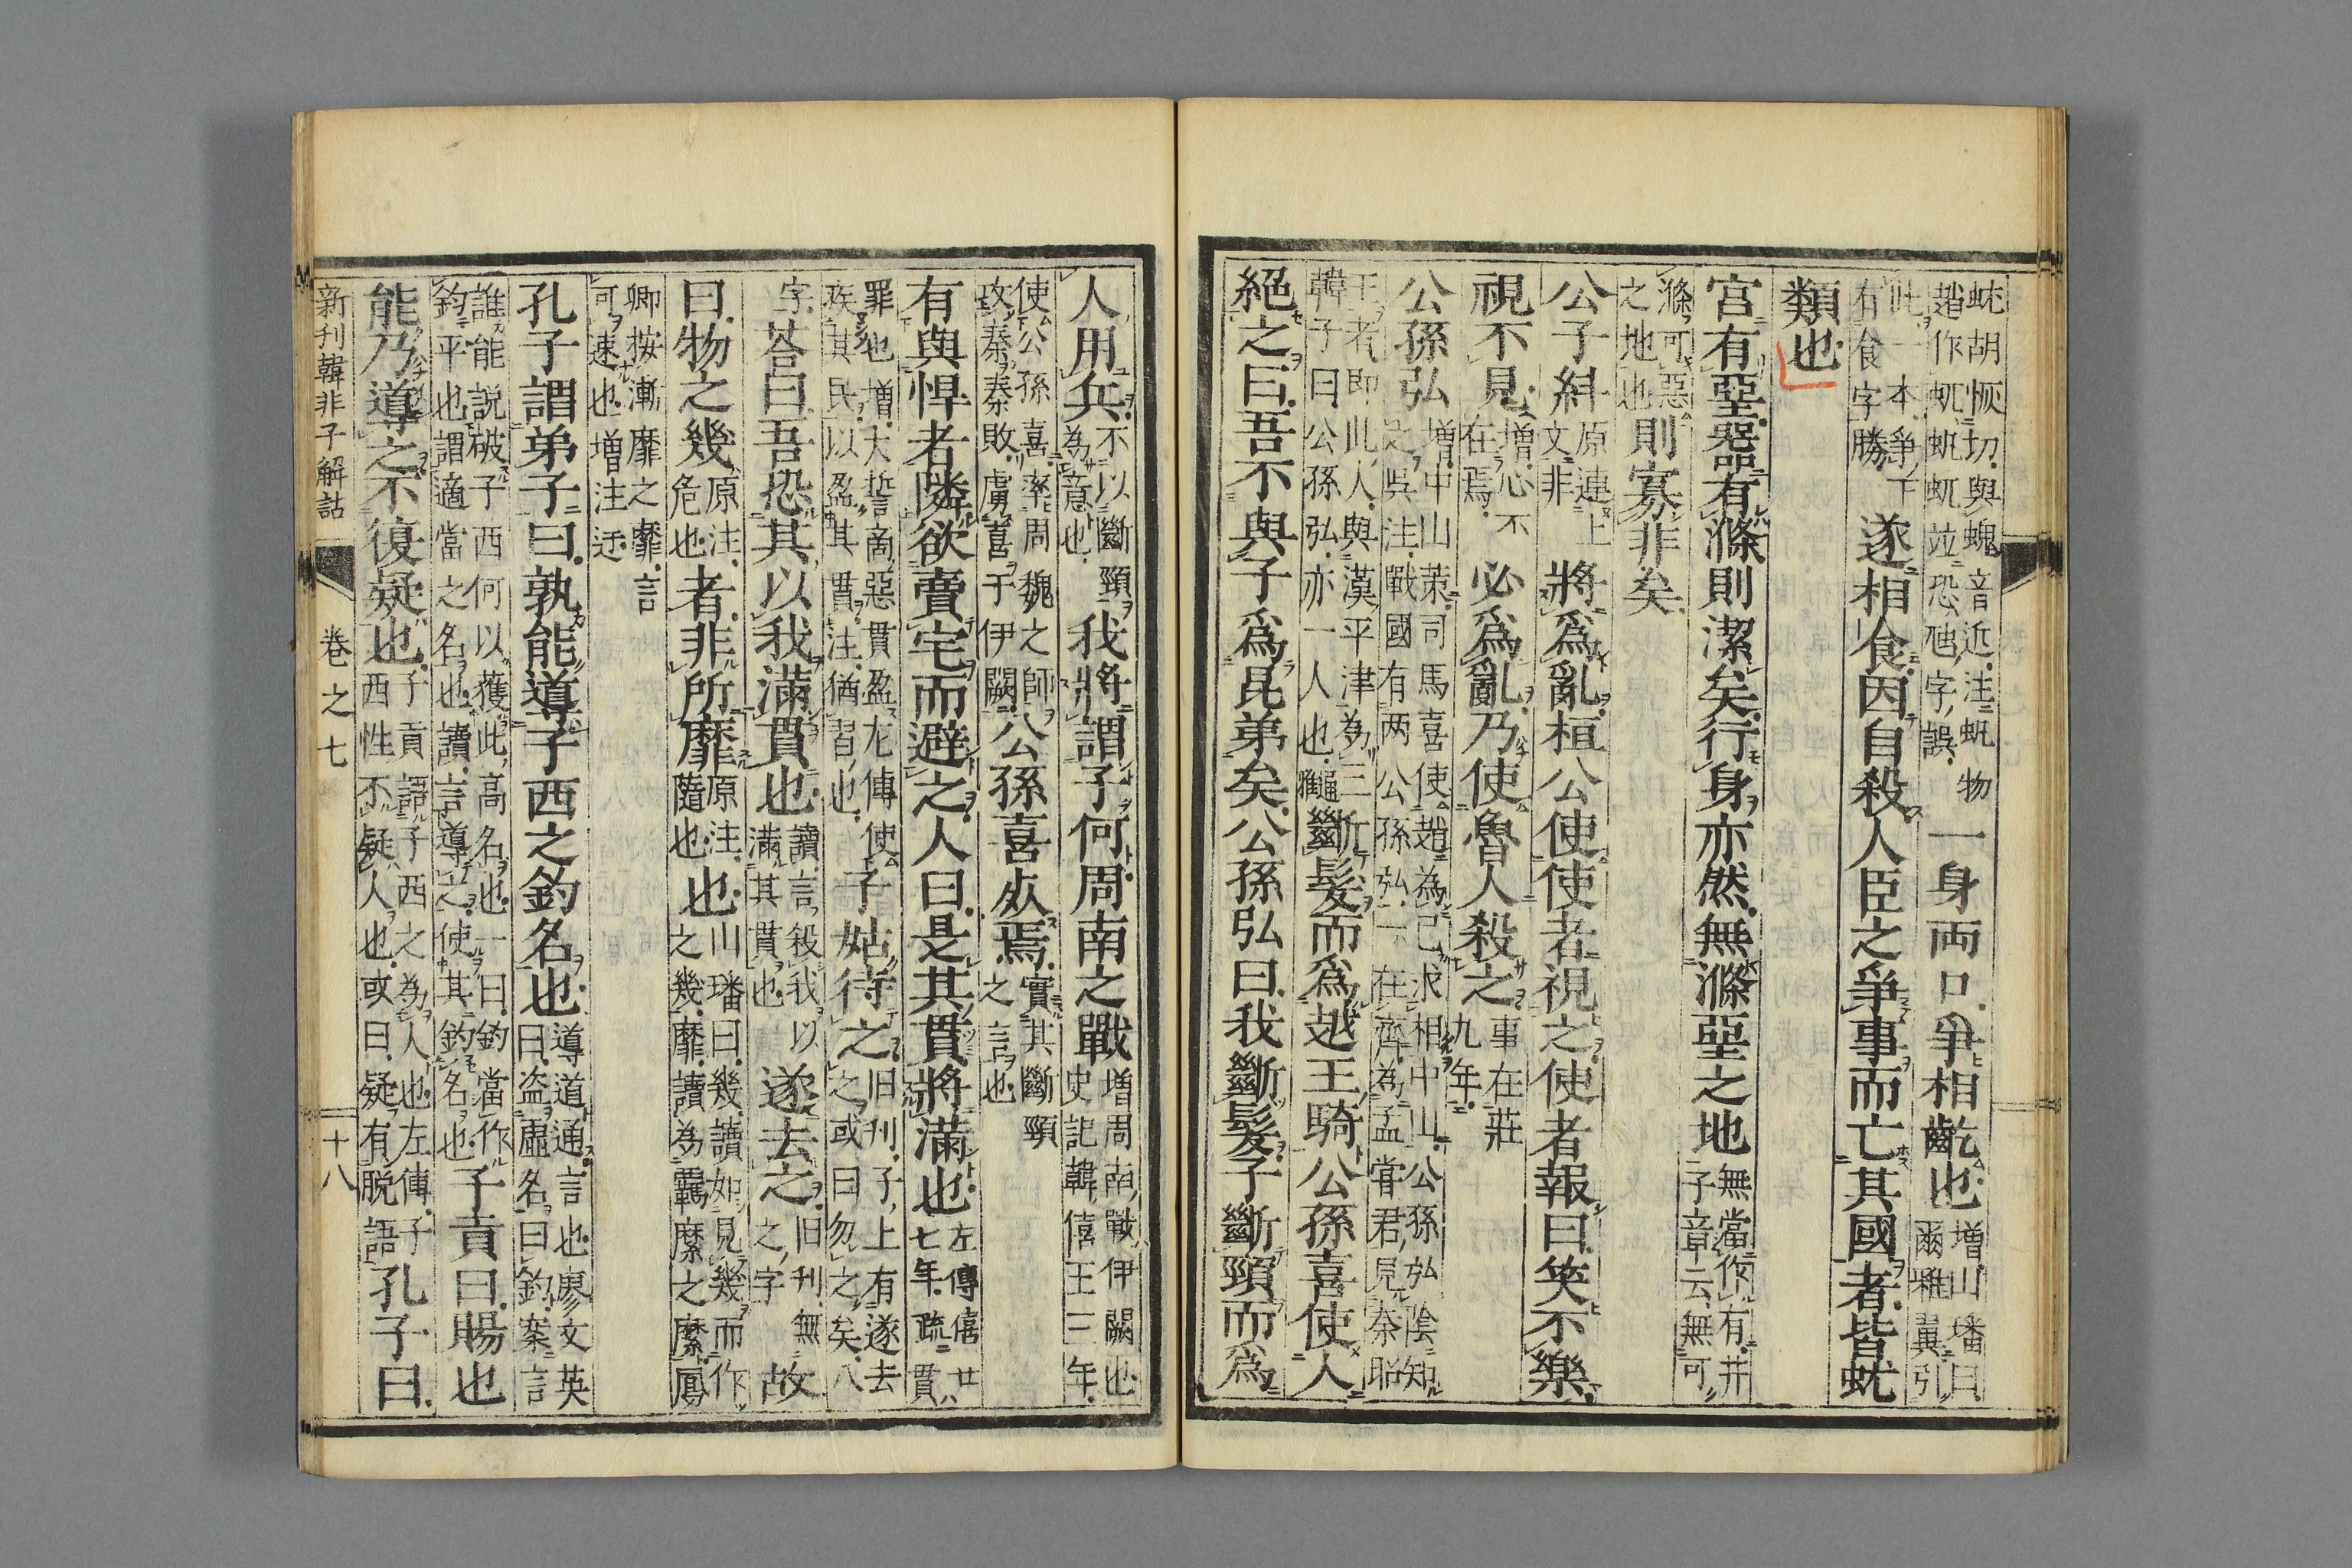 蚘胡恢切與螝音近注蚖物
趙作虬蚖虬竝恐虺字誤
一身両口爭相齕也
増山墦曰
爾雅翼引
此一本爭下
有食字勝
遂相食因自殺人臣之爭事而亡其國者皆蚘
類也
宮有堊器有滌則潔矣行身亦然無滌堊之地
無當作有井
子章云無可
滌可惡
之地也
則寡非矣
公子糾
原連上
文非
將爲亂桓公使使者視之使者報曰笑不樂
視不見
増心不
在焉
必爲亂乃使魯人殺之
事在莊
九年
公孫弘
増中山策司馬喜使趙為己求相中山公孫弘陰知
之吳注戰國有両公孫弘一在齊為孟甞君見秦昭
王者即此人與漢平津為三
韓子曰公孫弘亦一人也
斷髮而爲越王騎公孫喜使人
絕之曰吾不與子爲昆弟矣公孫弘曰我斷髮子斷頸而爲
人用兵
不以斷頸
為意也
我將謂子何周南之戰
増周南戰伊闕也
史記韓僖王三年
使公孫喜率周魏之師
攻秦秦敗虜喜于伊闕
公孫喜死焉
實其斷頸
之言也
有與悍者隣欲賣宅而避之人曰是其貫將滿也
左傳僖廿八
七年疏貫
罪也増大誓啇惡貫盈左傳使
疾其民以盈其貫注猶習也
子姑待之
旧刋子上有遂去
之或曰勿之矣八
字
荅曰吾恐其以我滿貫也
讀言殺我以
滿其貫也
遂去之
旧刋無
之字
故
曰物之幾
原注
危也
者非所靡
原注
隨也
也
山璠曰幾讀如見幾而作
之幾靡讀為羈縻之縻鳳
卿按漸靡之靡言
可速也増注迂
孔子謂弟子曰孰能導子西之釣名也
導道通言也廖文英
曰盗虚名曰釣案言
誰能說破子西何以獲此高名也一曰釣當作
鈞平也謂適當之名也讀言導之使其釣名也
子貢曰賜也
能乃導之不復疑也
子貢謂子西之為人也左傳子
西性不疑人也或曰疑有脱語
孔子曰
新刋韓非子解詁
卷之七
十八